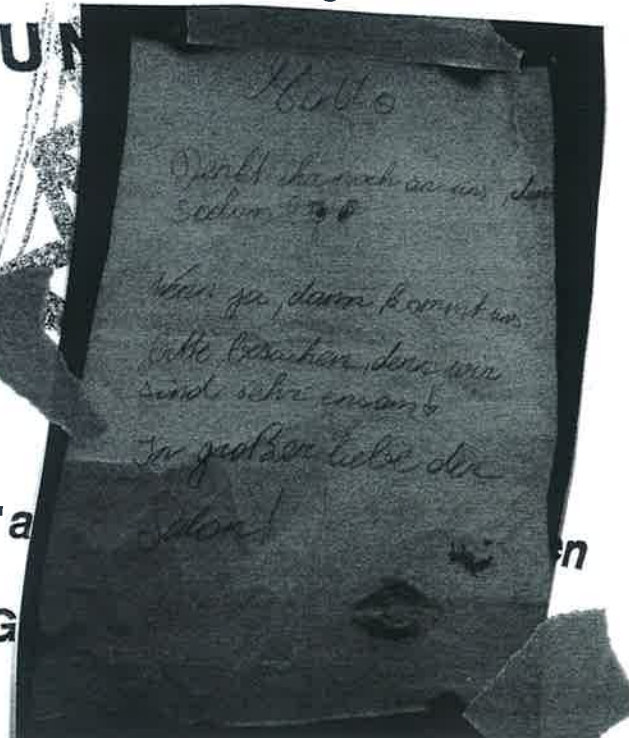 UN
Hallo
Denkt ihr noch an uns, den
Wenn ja, dann kommt uns
bitte besuchen, denn wir
sind sehr einsam!
In großer Liebe der
Salon!
'a
en
G